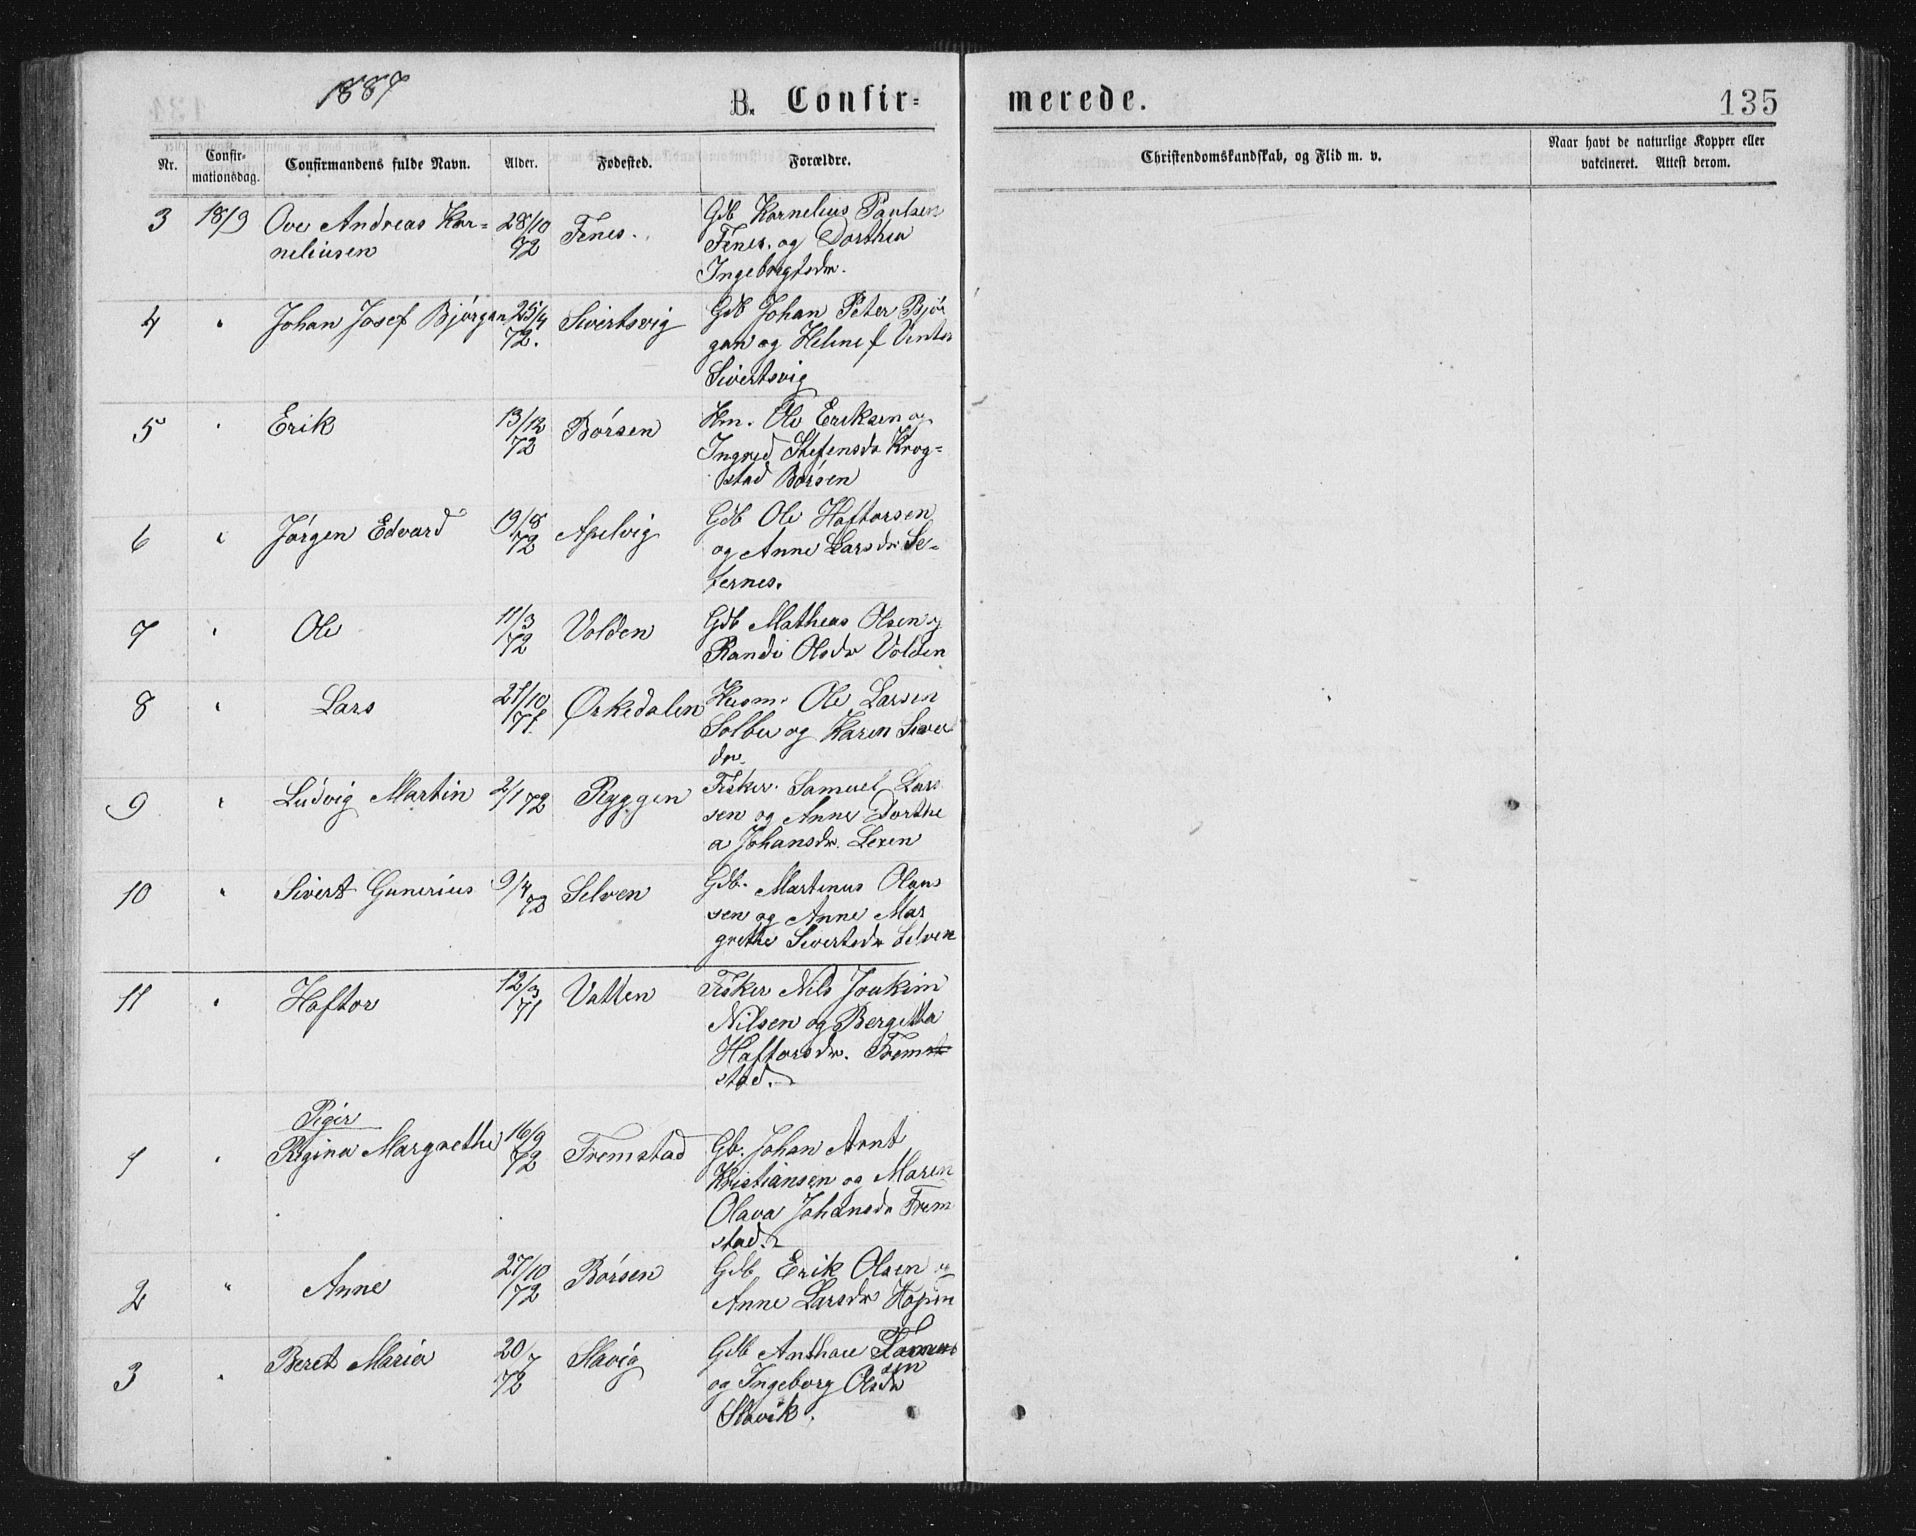 1887
B. Confir-
merede.
135
Nr.
Confir-
mationsdag.
Confirmandens fulde Navn.
Alder.
Fødested.
Forældre.
Christendomskundskab, og Flid m. v.
Naar havt de naturlige Kopper eller
vakcineret. Attest derom.
3 18/9 Ove Andreas Kor= 28/10 Fenes. Gdb Kornelius Paulsen
neliusen 72 Fenes. og Dorthea
Ingebrigtsdr.
4 " Johan Josef Bjørgan 25/4 Sivertsvig Gdb Johan Peter Bjør
72. gan og Heline f Vinter
Sivertsvig
5 " Erik 13/12 Børsen Hm. Ole Eriksen og
72 Ingred Stefensdr Krog=
stad Børsen
6 " Jørgen Edvard 19/8 Apelvig Gdb Ole Haftorsen
72 og Anne Larsdr Se-
ternes.
7 " Ole 11/3 Volden Gdb Matheas Olsen og
72 Randi Olsdr Volden
8 " Lars 21/10 Ørkedalen Husm. Ole Larsen
71. Solber og Karen Siver
dr.
9 " Ludvig Martin 2/1 72 Ryggen Fisker. Samuel Lars
sen og Anne Dorthe
a Johansdr. Lexen
10 " Sivert Gunerius 9/4 72 Selven Gdb. Martinus Olaus
sen og Anne Mar
grethe Sivertsdr Selven
11 " Haftor 12/3 Vatten Fisker Nils Joakim
71 Nilsen og Bergitta
Haftorsdr. Frem
stad.
Piger
1 " Regina Margrethe 16/9 Fremstad Gb. Johan Arnt
72 Kristiansen og Maren
Olava Johansdr Frem
stad.
2 " Anne 27/10 Børsen Gdb Erik Olsen og
72 Anne Larsdr Hopen
3 " Beret Maria 20/7 Slavig Gdb Anthon
72 og Ingeborg Olsdr
Slavik.